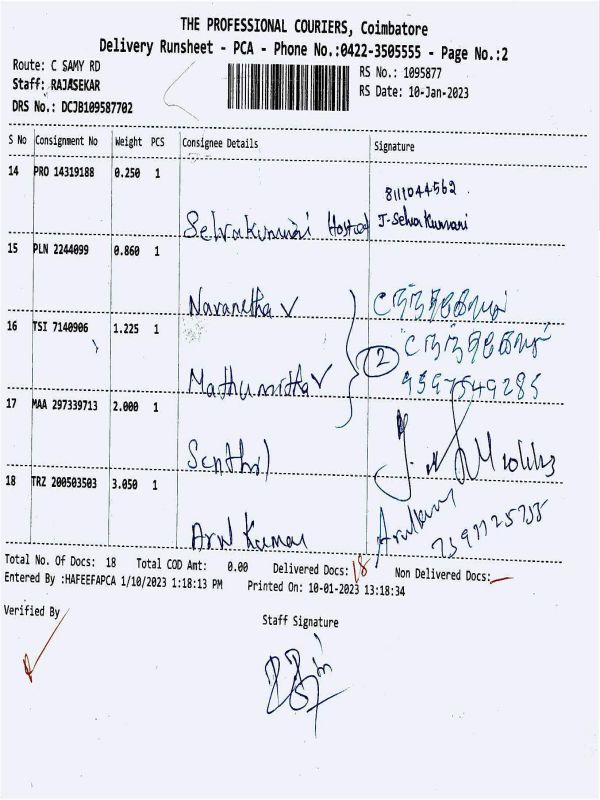 THE PROFESSIONAL COURIERS, Coimbatore
Delivery Runsheet - PCA - Phone No.:0422-3505555 - Page No.:2
Route: C SAMY RD
RS No.: 1095877
Staff: RAJASEKAR
RS Date: 10-Jan-2023
DRS No.: DCJB109587702
S No Consignment No Weight PCS Consignee Details Signature
14 PRO 14319188 0.250 1
8111044562
Selvakumari Hostel J-Selvakumari
15 PLN 2244099 0.860 1
Navanetha
16 TSI 7140906 1.225 1
2
Mathumitha 9597549285
17 MAA 297339713 2.000 1
Senthil
18 TRZ 200503503 3.050 1
Arul Kumar Arulkumar
Total No. Of Docs: 18 Total COD Amt: 0.00 Delivered Docs: 18 Non Delivered Docs:
Entered By :HAFEEFAPCA 1/10/2023 1:18:13 PM Printed On: 10-01-2023 13:18:34
Verified By
Staff Signature